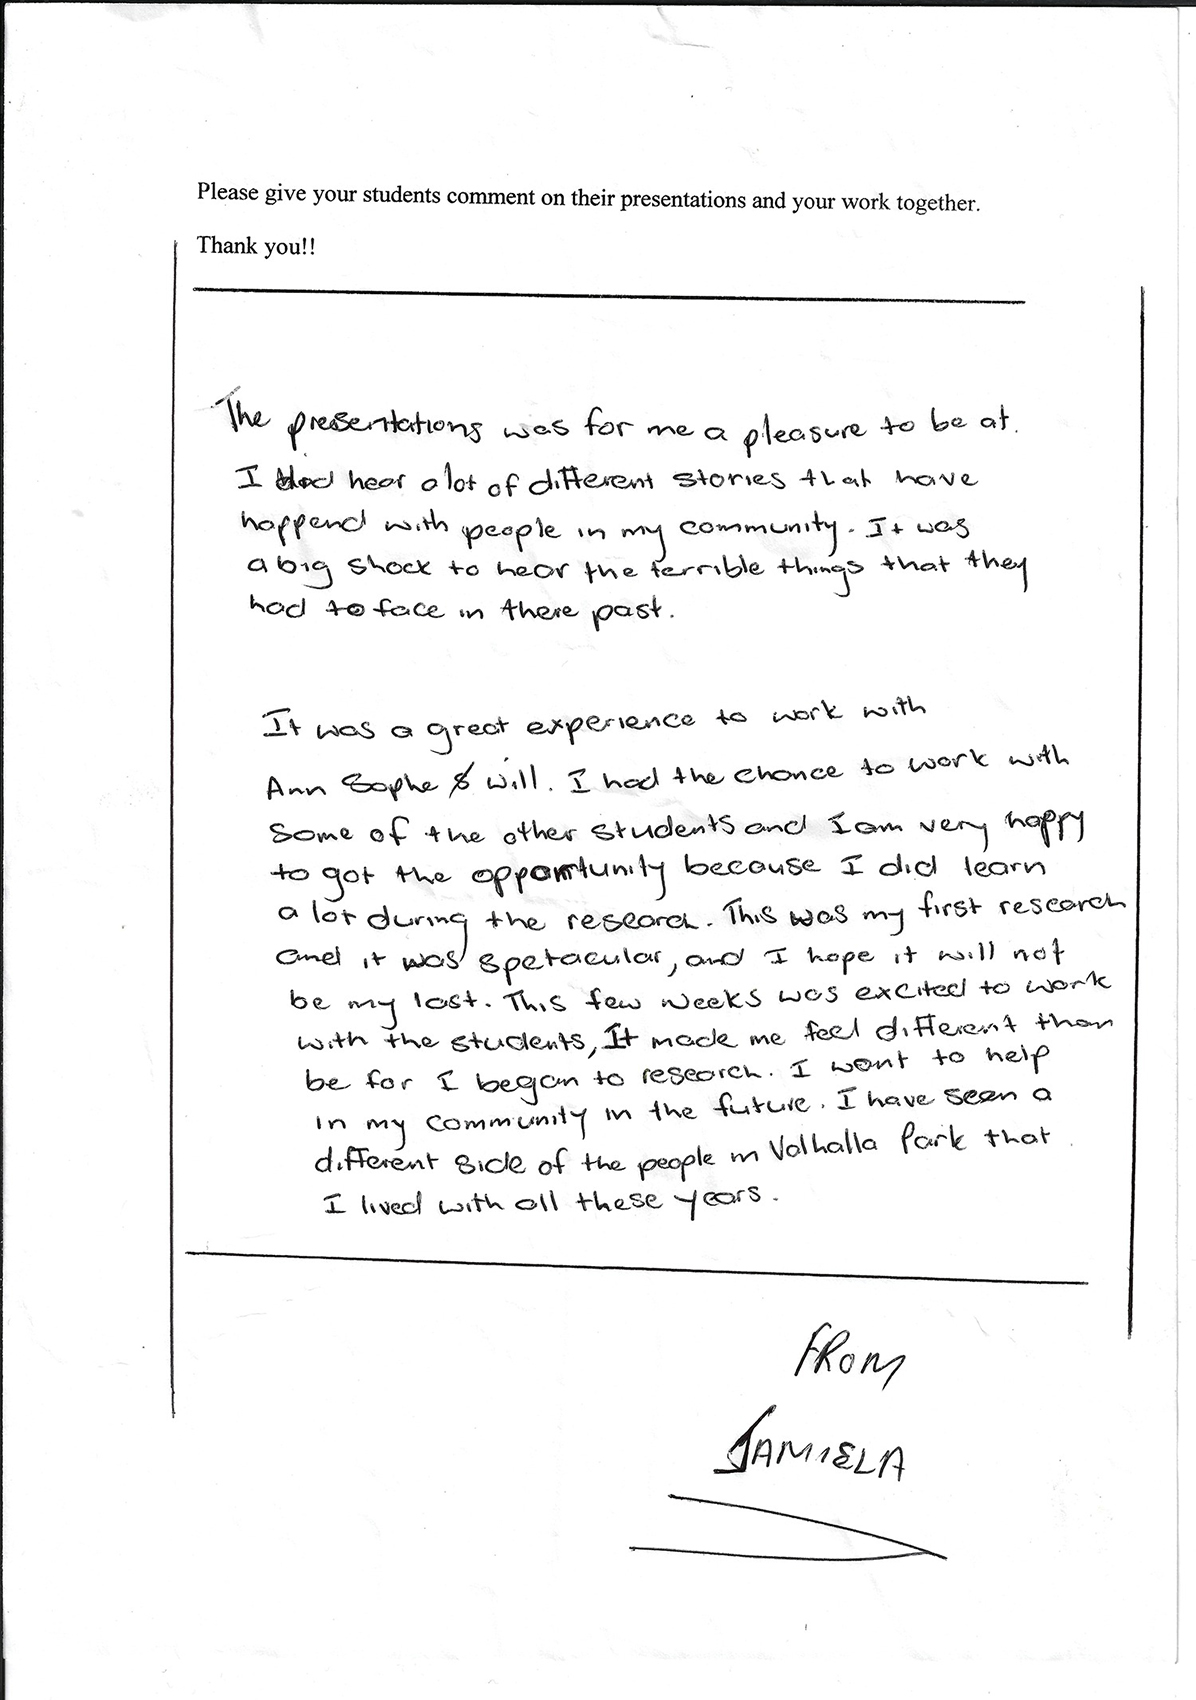 Please give your students comment on their presentations and your work together.
Thank you!!
The presentations was for me a pleasure to be at.
I had hear a lot of different stories that have
happend with people in my community. It was
a big shock to hear the terrible things that they
had to face in there past.
It was a great experience to work with
Ann Sophe & Will. I had the chance to work with
some of the other students and I am very happy
to got the opportunity because I did learn
a lot during the research. This was my first research
and it was spetacular, and I hope it will not
be my last. This few weeks was excited to work
with the students, It made me feel different than
be for I began to research. I want to help
in my community in the future. I have seen a
different side of the people in Valhalla Park that
I lived with all these years.
FROM
JAMIELA